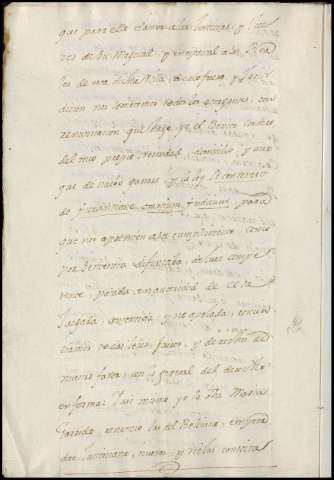 que para ello damos a las Justicias y Jue
ces de Su Magestad, y en especial a los Rea
les de esta dicha Villa, a cuio fuero, y Juris
dicion nos sometemos todos los otorgantes, con
renunciacion que hago yo el Benito Gomez
del mio propio vecindad, domicilio, y otro
que de nuevo ganare, y la ley Si combenerit
de Jurisdictione omnium Judicum para
que nos apremien a su cumplimiento como
por Sentencia difinitiva, de Juez compe
tente pasada en autoridad de cosa
Juzgada, consentida, y no apelada, renun
ciamos todas leyes, fueros, y derechos de
nuestro favor, con la general del derecho
en forma: Y asi mismo yo la dha Maria
renuncio las del Beleiano, empera
dor Justiniano, nuevas, y viejas constitu